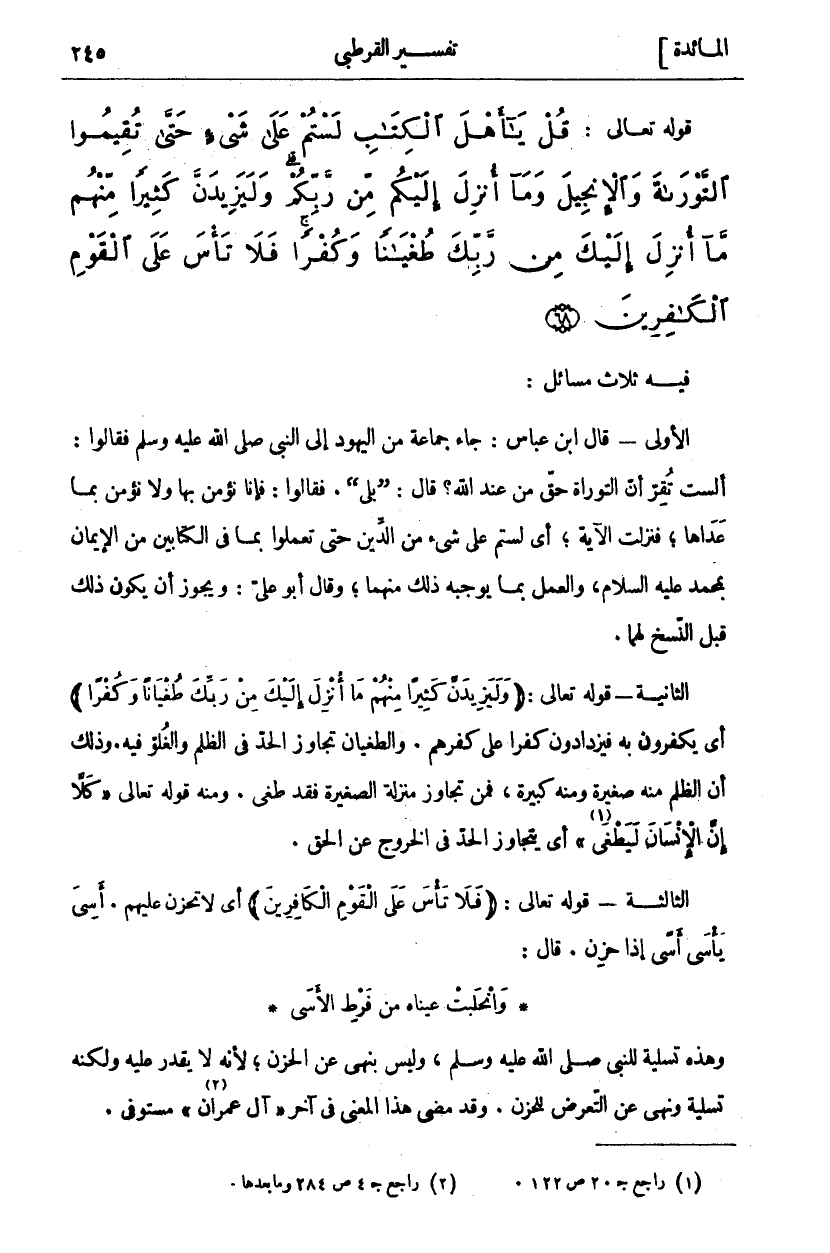 المائدة ] تفسير القرطبي ٢٤٥
قوله تعالى : قُلْ يَٰٓأَهْلَ ٱلْكِتَٰبِ لَسْتُمْ عَلَىٰ شَىْءٍ حَتَّىٰ تُقِيمُوا
ٱلتَّوْرَىٰةَ وَٱلْإِنجِيلَ وَمَآ أُنزِلَ إِلَيْكُم مِّن رَّبِّكُمْ ۗ وَلَيَزِيدَنَّ كَثِيرًا مِّنْهُم
مَّآ أُنزِلَ إِلَيْكَ مِن رَّبِّكَ طُغْيَٰنًا وَكُفْرًا ۖ فَلَا تَأْسَ عَلَى ٱلْقَوْمِ
ٱلْكَٰفِرِينَ ۝٦٨
فيه ثلاث مسائل :
الأولى — قال ابن عباس : جاء جماعة من اليهود إلى النبي صلى الله عليه وسلم فقالوا :
ألست تُقِرّ أنّ التوراة حقّ من عند الله؟ قال : ”بلى“ . فقالوا : فإنا نؤمن بها ولا نؤمن بما
عَدَاها ؛ فنزلت الآية ؛ أى لستم على شىء من الدِّين حتى تعملوا بما فى الكتابين من الإيمان
بمحمد عليه السلام، والعمل بما يوجبه ذلك منهما ؛ وقال أبو علىّ : ويجوز أن يكون ذلك
قبل النّسخ لهما .
الثانية — قوله تعالى : ﴿ وَلَيَزِيدَنَّ كَثِيرًا مِنْهُمْ مَا أُنْزِلَ إِلَيْكَ مِنْ رَبِّكَ طُغْيَانًا وَكُفْرًا ﴾
أى يكفرون به فيزدادون كفرا على كفرهم . والطغيان تجاوز الحدّ فى الظلم والغُلوّ فيه. وذلك
أن الظلم منه صغيرة ومنه كبيرة ، فمن تجاوز منزلة الصغيرة فقد طغى . ومنه قوله تعالى «كَلَّا
إِنَّ الْإِنْسَانَ لَيَطْغَى(١)» أى يتجاوز الحدّ فى الخروج عن الحق .
الثالثة — قوله تعالى : ﴿ فَلَا تَأْسَ عَلَى الْقَوْمِ الْكَافِرِينَ ﴾ أى لاتحزن عليهم . أَسِىَ
يَأْسَى أَسًى إذا حزن . قال :
* وَانْحَلَبتْ عيناه من فَرْطِ الأَسَى *
وهذه تسلية للنبي صلى الله عليه وسلم ، وليس بنهى عن الحزن ؛ لأنه لا يقدر عليه ولكنه
تسلية ونهى عن التّعرض للحزن . وقد مضى هذا المعنى فى آخر « آل عمران(٢) » مستوفى .
(١) راجع ج ٢٠ ص ١٢٢ . (٢) راجع ج ٤ ص ٢٨٤ وما بعدها .